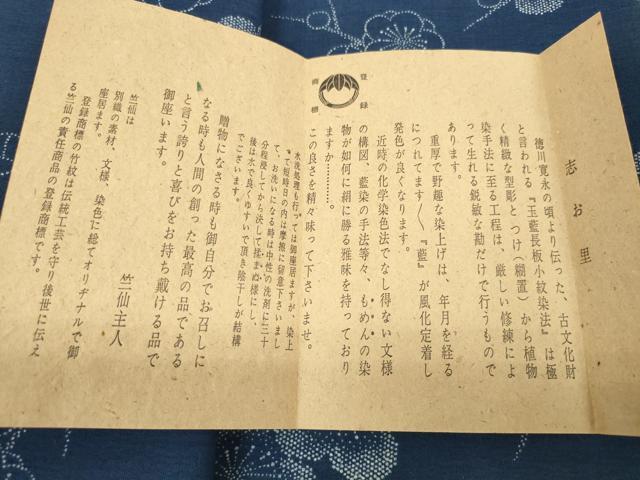 志お里
徳川寛永の頃より伝った、古文化財
と言われる『玉藍長板小紋染法』は極
く精緻な型彫と つけ（糊置）から植物
染手法に至る工程は、厳しい修練によ
って生れる鋭敏な勘だけで行うもので
あります。
重厚で野趣な染上げは、年月を経る
につれてます〱『藍』が風化定着し
発色が良くなります。
近時の化学染色法でなし得ない文様
の構図、藍染の手法等々、もめんの染
物が如何に絹に勝る雅味を持っており
ますか…………。
この良さを精々味って下さいませ。
登録
商標
水洗処理も行っては御座居ますが、染上
って短時日の内は摩擦に留意下さいまし
て、お洗いになる時は中性の洗剤に三十
分程浸してから決して揉まぬ様にし、
後は水で良くゆすいで頂き陰干しが結構
でございます。
贈物になさる時も御自分でお召しに
なる時も人間の創った最高の品である
と言う誇りと喜びをお持ち戴ける品で
御座います。
竺仙主人
竺仙は
別織の素材、文様、染色に総てオリヂナルで御
座居ます。
登録商標の竹紋は伝統工芸を守り後世に伝え
る竺仙の責任商品の登録商標です。